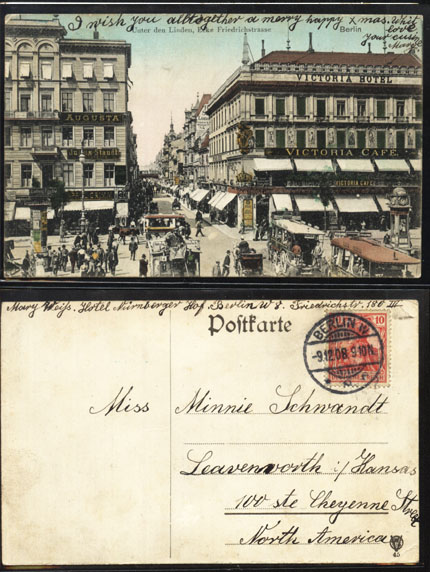 I wish you alltogether a merry happy Xmas. With
love
your cousin
Mary
Unter den Linden, Ecke Friedrichstrasse
Berlin
VICTORIA HOTEL
AUGUSTA
VICTORIA CAFE
VICTORIA CAFE
Mary Weiss. Hotel Nürnberger Hof Berlin W 8. Friedrichstr. 180 III
Postkarte
BERLIN W
-9.12.08. 9-10 N.
10
Miss Minnie Schwandt
Leavenworth i/Kansas
100 ste Cheyenne Street
North America
45